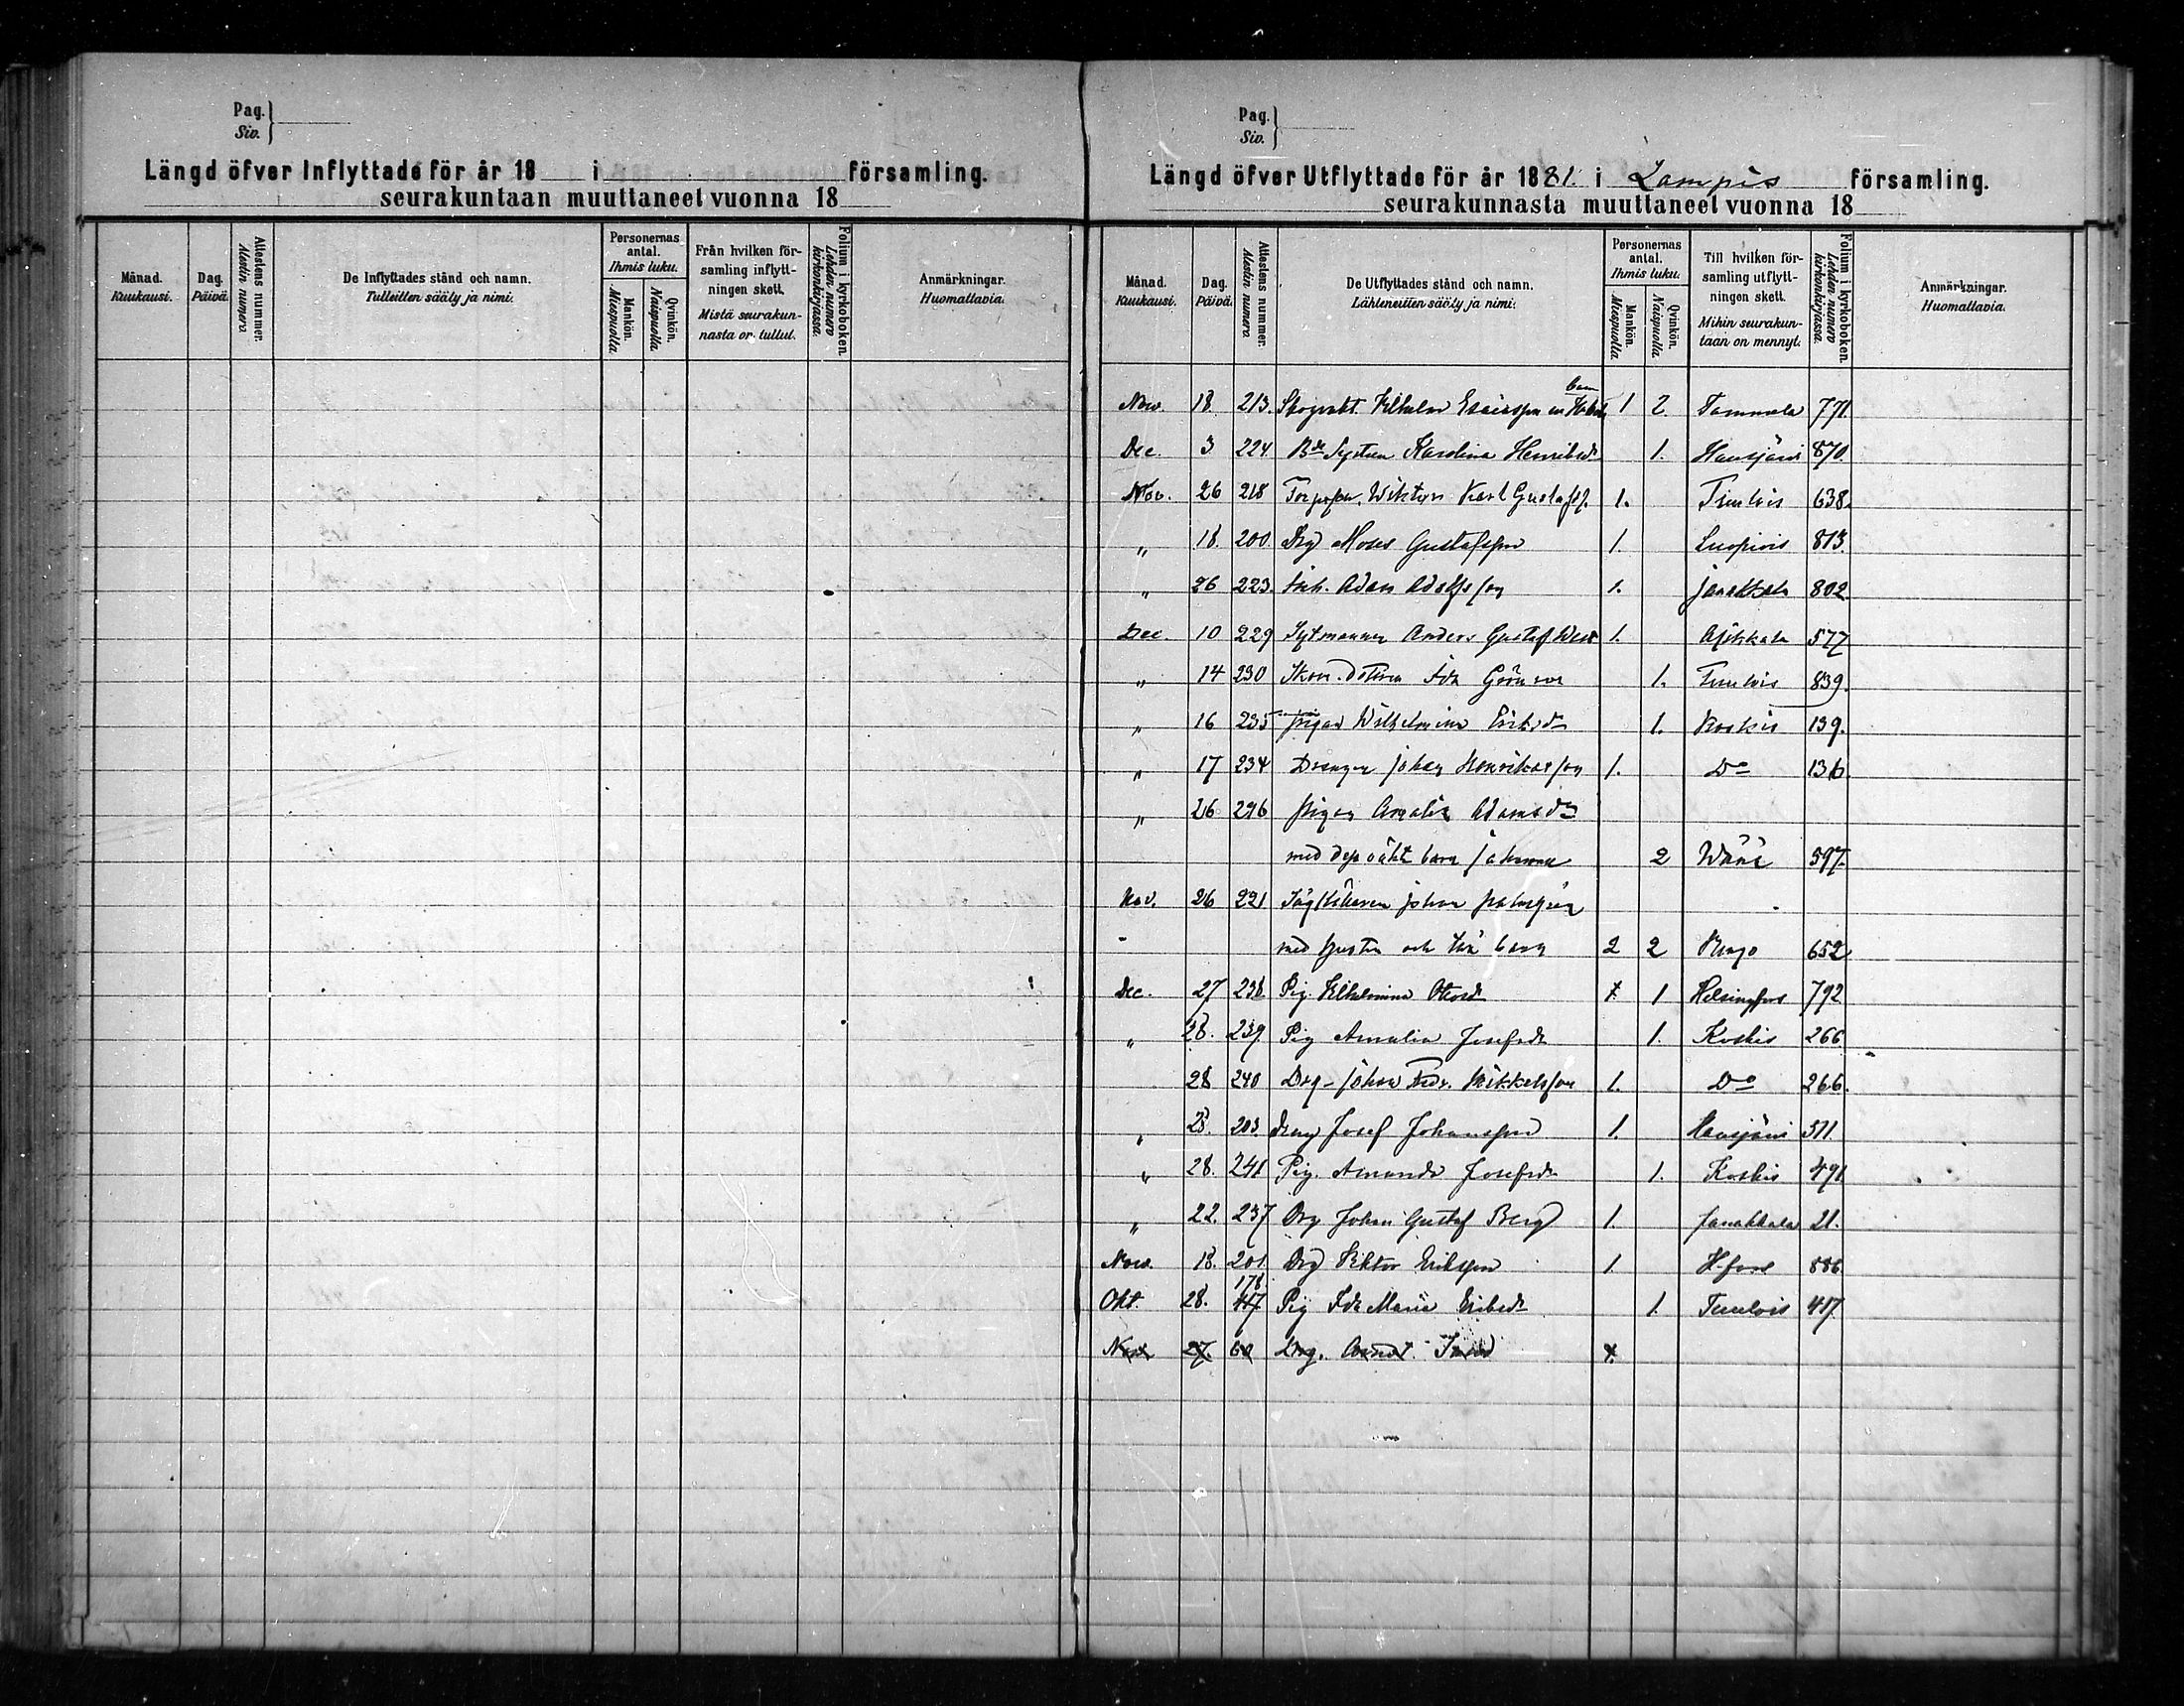 Pag.
Siv.
Längd öfver Inflyttade för år 18 i församling.
seurakuntaan muuttaneet vuonna 18
Månad.
Kuukausi.
Dag.
Päivä.
Attestens nummer.
Alestin numero
De Inflyttades stånd och namn.
Tulleitten sääty ja nimi.
Personernas antal.
Ihmis luku.
Mankön.
Miespuolla
Qvinkön.
Naispuolla
Från hvilken för-
samling inflytt-
ningen skett.
Mistä seurakun-
nasta on tullut.
Folium i kyrkoboken.
Lehden numero
kirkonkirjassa.
Anmärkningar.
Huomattavia.
Pag.
Siv.
Längd öfver Utflyttade för år 1881. i Lampis församling.
seurakunnasta muuttaneet vuonna 18
Månad.
Kuukausi.
Dag.
Päivä.
Attestens nummer.
Alestin numero
De Utflyttades stånd och namn.
Lähteneitten sääty ja nimi.
Personernas antal.
Ihmis luku.
Mankön.
Miespuolla
Qvinkön.
Naispuolla
Till hvilken för-
samling utflytt-
ningen skett.
Mihin seurakun-
taan on mennyt.
Folium i kyrkoboken.
Lehden numero
kirkonkirjassa.
Anmärkningar.
Huomattavia.
Nov. 18 213. 1 2. Tammela 771.
Dec. 3 224 Karolina Henriksdr 1. Hausjärvi 870.
Nov. 26 218 Karl Gustafss. 1. Tuulois 638.
" 18. 200. Drg Moses Gustafsson 1. Luopiois 813
" 26 223. Inh. Adam Adolfsson 1. Janakkala 802.
Dec. 10 229 Anders Gustaf 1. Asikkala 577
" 14 230 Ida 1. Tuulois 839.
" 16 235 pigan Wilhelmina Eriksdr 1. Koskis 139.
" 17 234 Drengen Johan Henriksson 1. Do 136.
" 26 296 pigan Amalia Adamsdr
med dess oäkta barn Johanna 2 Wånå 597.
Nov. 26 221 Johan
" med hustru och två barn 2 2 652
Dec. 27 238 Pig. Vilhelmina 1 Helsingfors 792
" 28. 239. Pig Amalia Josefsdr 1. Koskis 266.
28 240 Drg- Johan Fredr. Mikkelsson 1. Do 266.
" 28. 203. dreng Josef Johansson 1. Hausjärvi 511.
" 28. 241 Pig. Amanda Josefsdr 1. Koskis 491
" 22. 237 Drg Johan Gustaf Berg 1. Janakkala 21.
Nov. 18. 201. Drg Viktor Eriksson 1. H-fors 886
Okt. 28. 178 Pig Ida Maria Eriksdr 1. Tuulois 417.
Nov 27. 60 Drg.